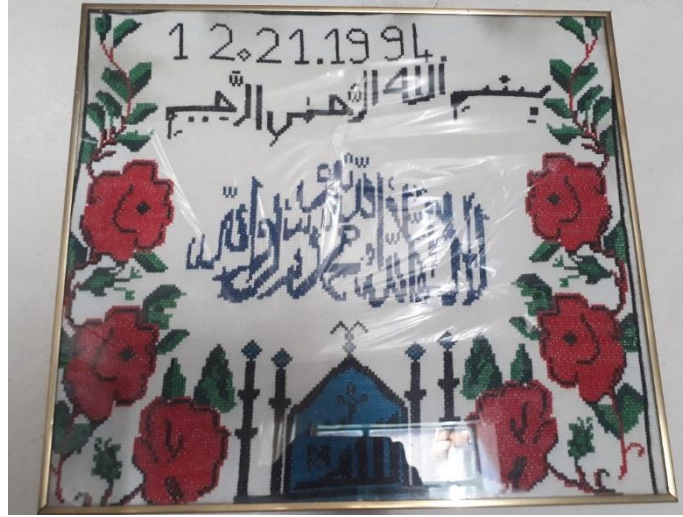 12.21.1994.
بسم الله الرحمن الرحيم
لا إله إلا الله محمد رسول الله